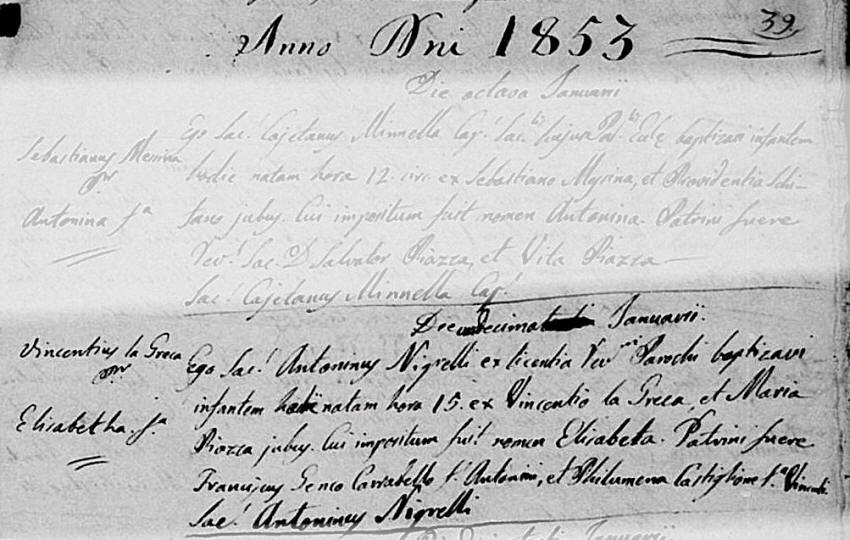 39.
Anno Dni 1853
Die octava Januarii
Sebastianus Messina
pr
Antonina fa
Ego Sac.t Cajetanus Minnella Cap.t Sac.ti hujus Par.lis Ecclę baptizavi infantem
hodie natam hora 12. circ. ex Sebastiano Mysina, et Providentia Schi-
tano jubus. Cui impositum fuit nomen Antonina. Patrini fuere
Rev.t Sac. D. Salvator Piazza, et Vita Piazza
Sac.t Cajetanus Minnella Cap.t
Die undecima Januarii.
Vincentius la Greca
pr
Elisabetha fa
Ego Sac.t Antoninus Nigrelli ex licentia Rev.mi Parochi baptizavi
infantem hodie natam hora 15. ex Vincentio la Greca, et Maria
Piazza jubus. Cui impositum fuit nomen Elisabeta. Patrini fuere
Franciscus Genco Carrabello f.s Antonini, et Philumena Castiglione f.a Vincentii
Sac.t Antoninus Nigrelli
Januarii